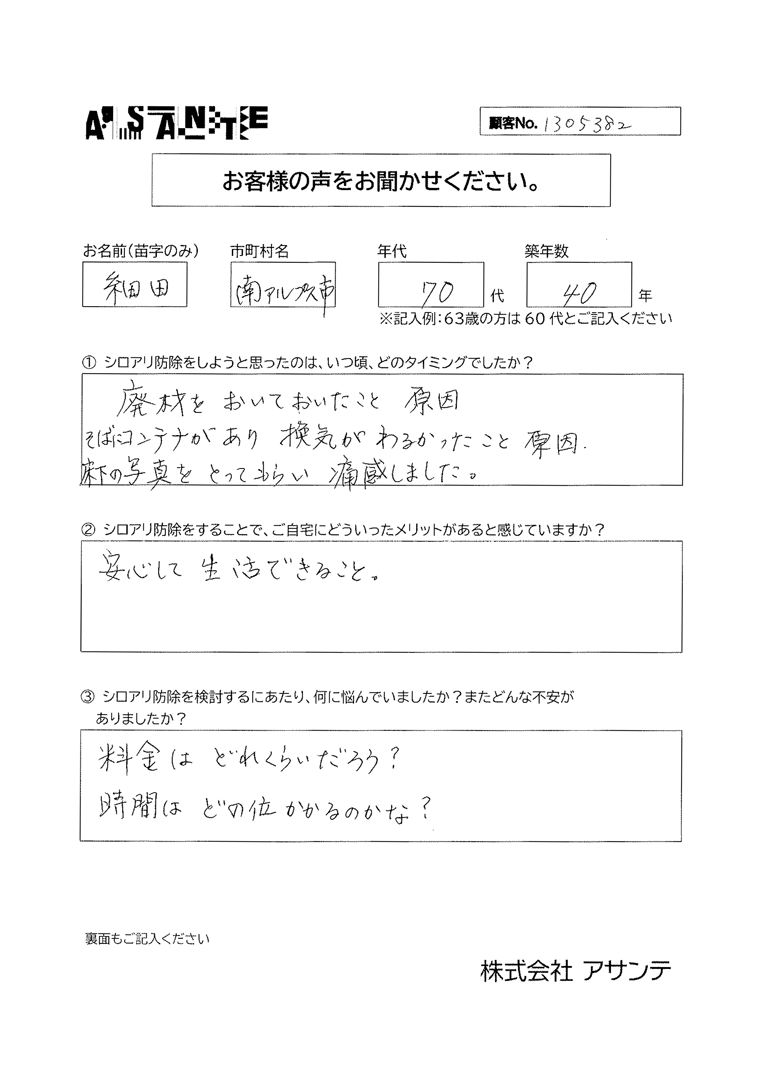 ASANTE
顧客No. 1305382
お客様の声をお聞かせください。
お名前(苗字のみ) 市町村名 年代 築年数
細田 南アルプス市 70 代 40 年
※記入例:63歳の方は60代とご記入ください
① シロアリ防除をしようと思ったのは、いつ頃、どのタイミングでしたか?
廃材を おいておいたこと 原因
そばにコンテナがあり 換気が わるかったこと 原因.
床下の写真を とってもらい 痛感しました。
② シロアリ防除をすることで、ご自宅にどういったメリットがあると感じていますか?
安心して 生活できること。
③ シロアリ防除を検討するにあたり、何に悩んでいましたか?またどんな不安が
ありましたか?
料金は どれくらいだろう?
時間は どの位かかるのかな?
裏面もご記入ください
株式会社 アサンテ